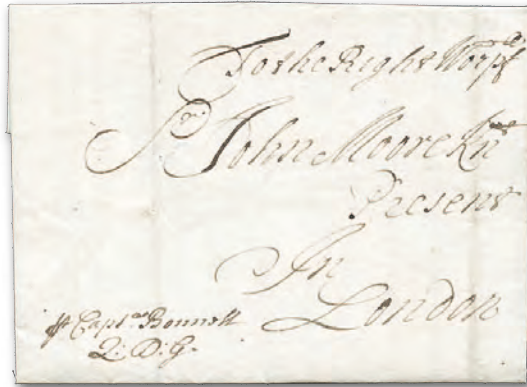 To the Right Worpf^ll
S^r John Moore Kn^t
Present
In
London
p Cap^t Bonnell
Q: D: G: